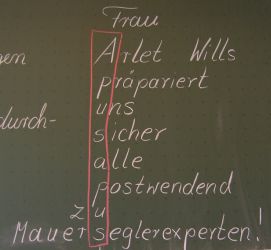 Frau
Arlet Wills
gen
präpariert
uns
durch-
sicher
alle
postwendend
zu
Mauerseglerexperten!